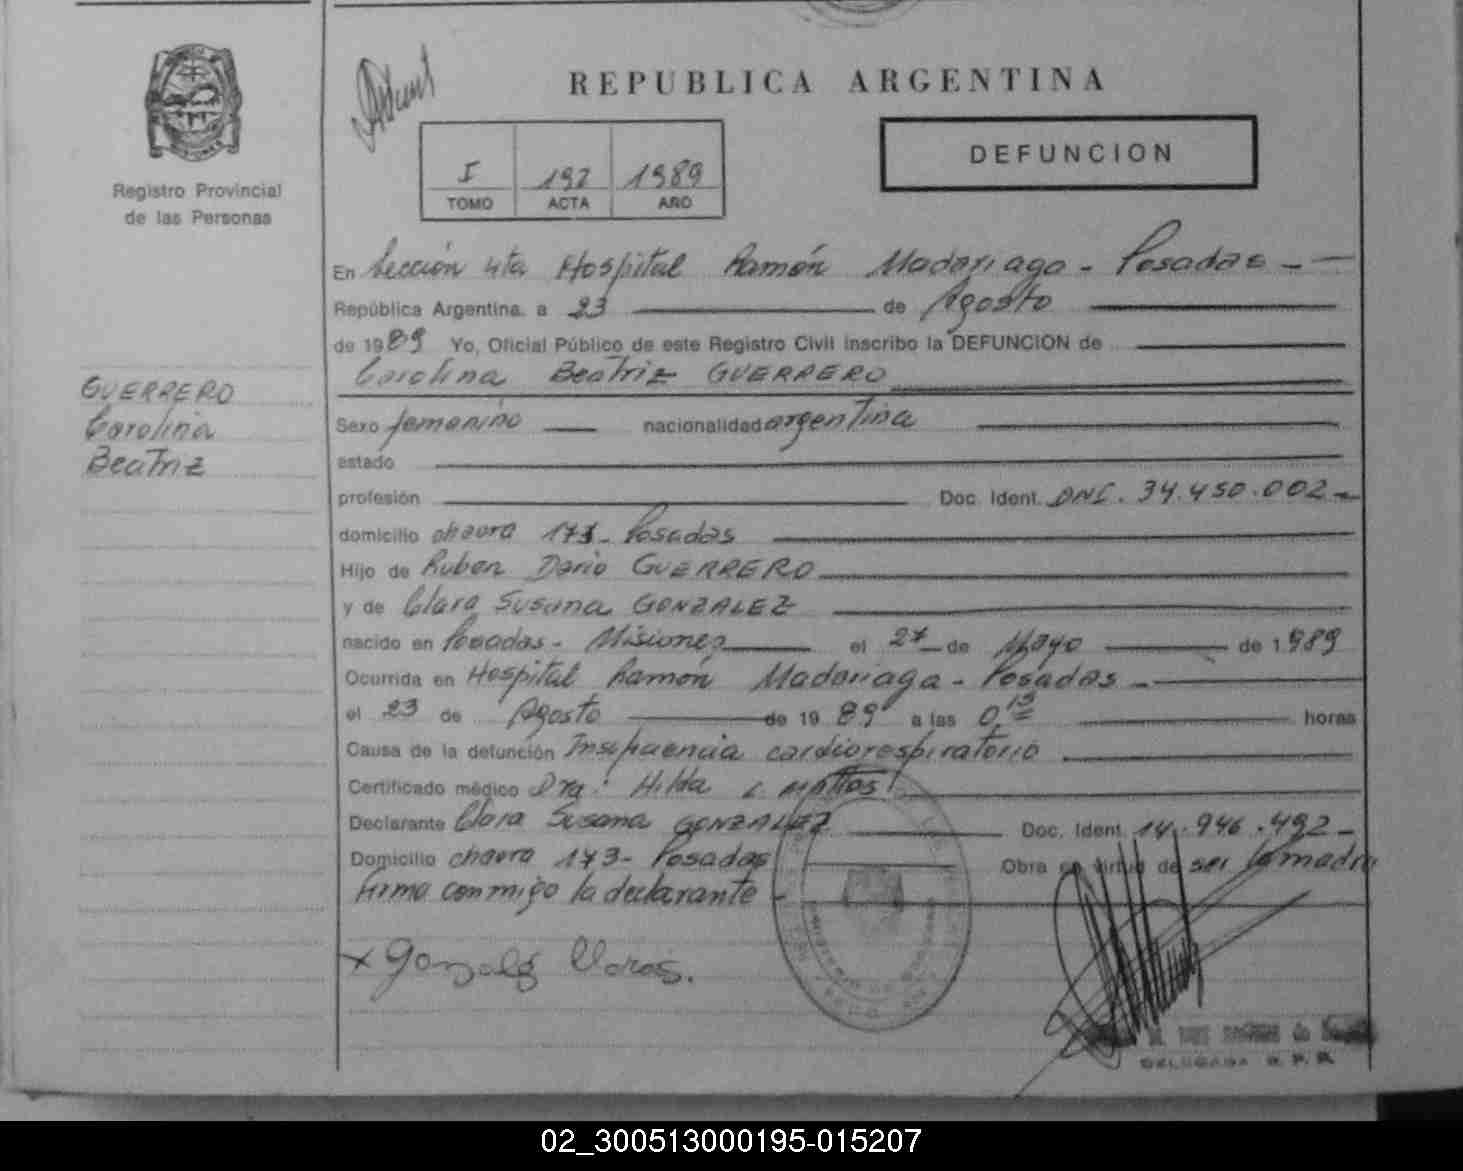 REPUBLICA ARGENTINA
I 192 1989
TOMO ACTA AÑO
DEFUNCION
Registro Provincial
de las Personas
GUERRERO
Carolina
Beatriz
En Sección 4ta Hospital Ramón Madariaga - Posadas -
República Argentina, a 23 de Agosto
de 1989 Yo, Oficial Público de este Registro Civil inscribo la DEFUNCION de
Carolina Beatriz GUERRERO
Sexo femenino nacionalidad argentina
estado
profesión Doc. Ident. DNI. 34.450.002
domicilio chacra 173 - Posadas
Hijo de Ruben Dario GUERRERO
y de Clara Susana GONZALEZ
nacido en Posadas - Misiones el 27 de Mayo de 1.989
Ocurrida en Hospital Ramón Madariaga - Posadas -
el 23 de Agosto de 1989 a las 0,15 horas
Causa de la defunción Insuficiencia cardiorespiratoria
Certificado médico Dra: Hilda
Declarante Clara Susana GONZALEZ Doc. Ident. 14.946.492
Domicilio chacra 173 - Posadas Obra en virtud de ser la madre
Firma conmigo la declarante -
x Gonzalez
DELEGADA R. P. P.
02_300513000195-015207